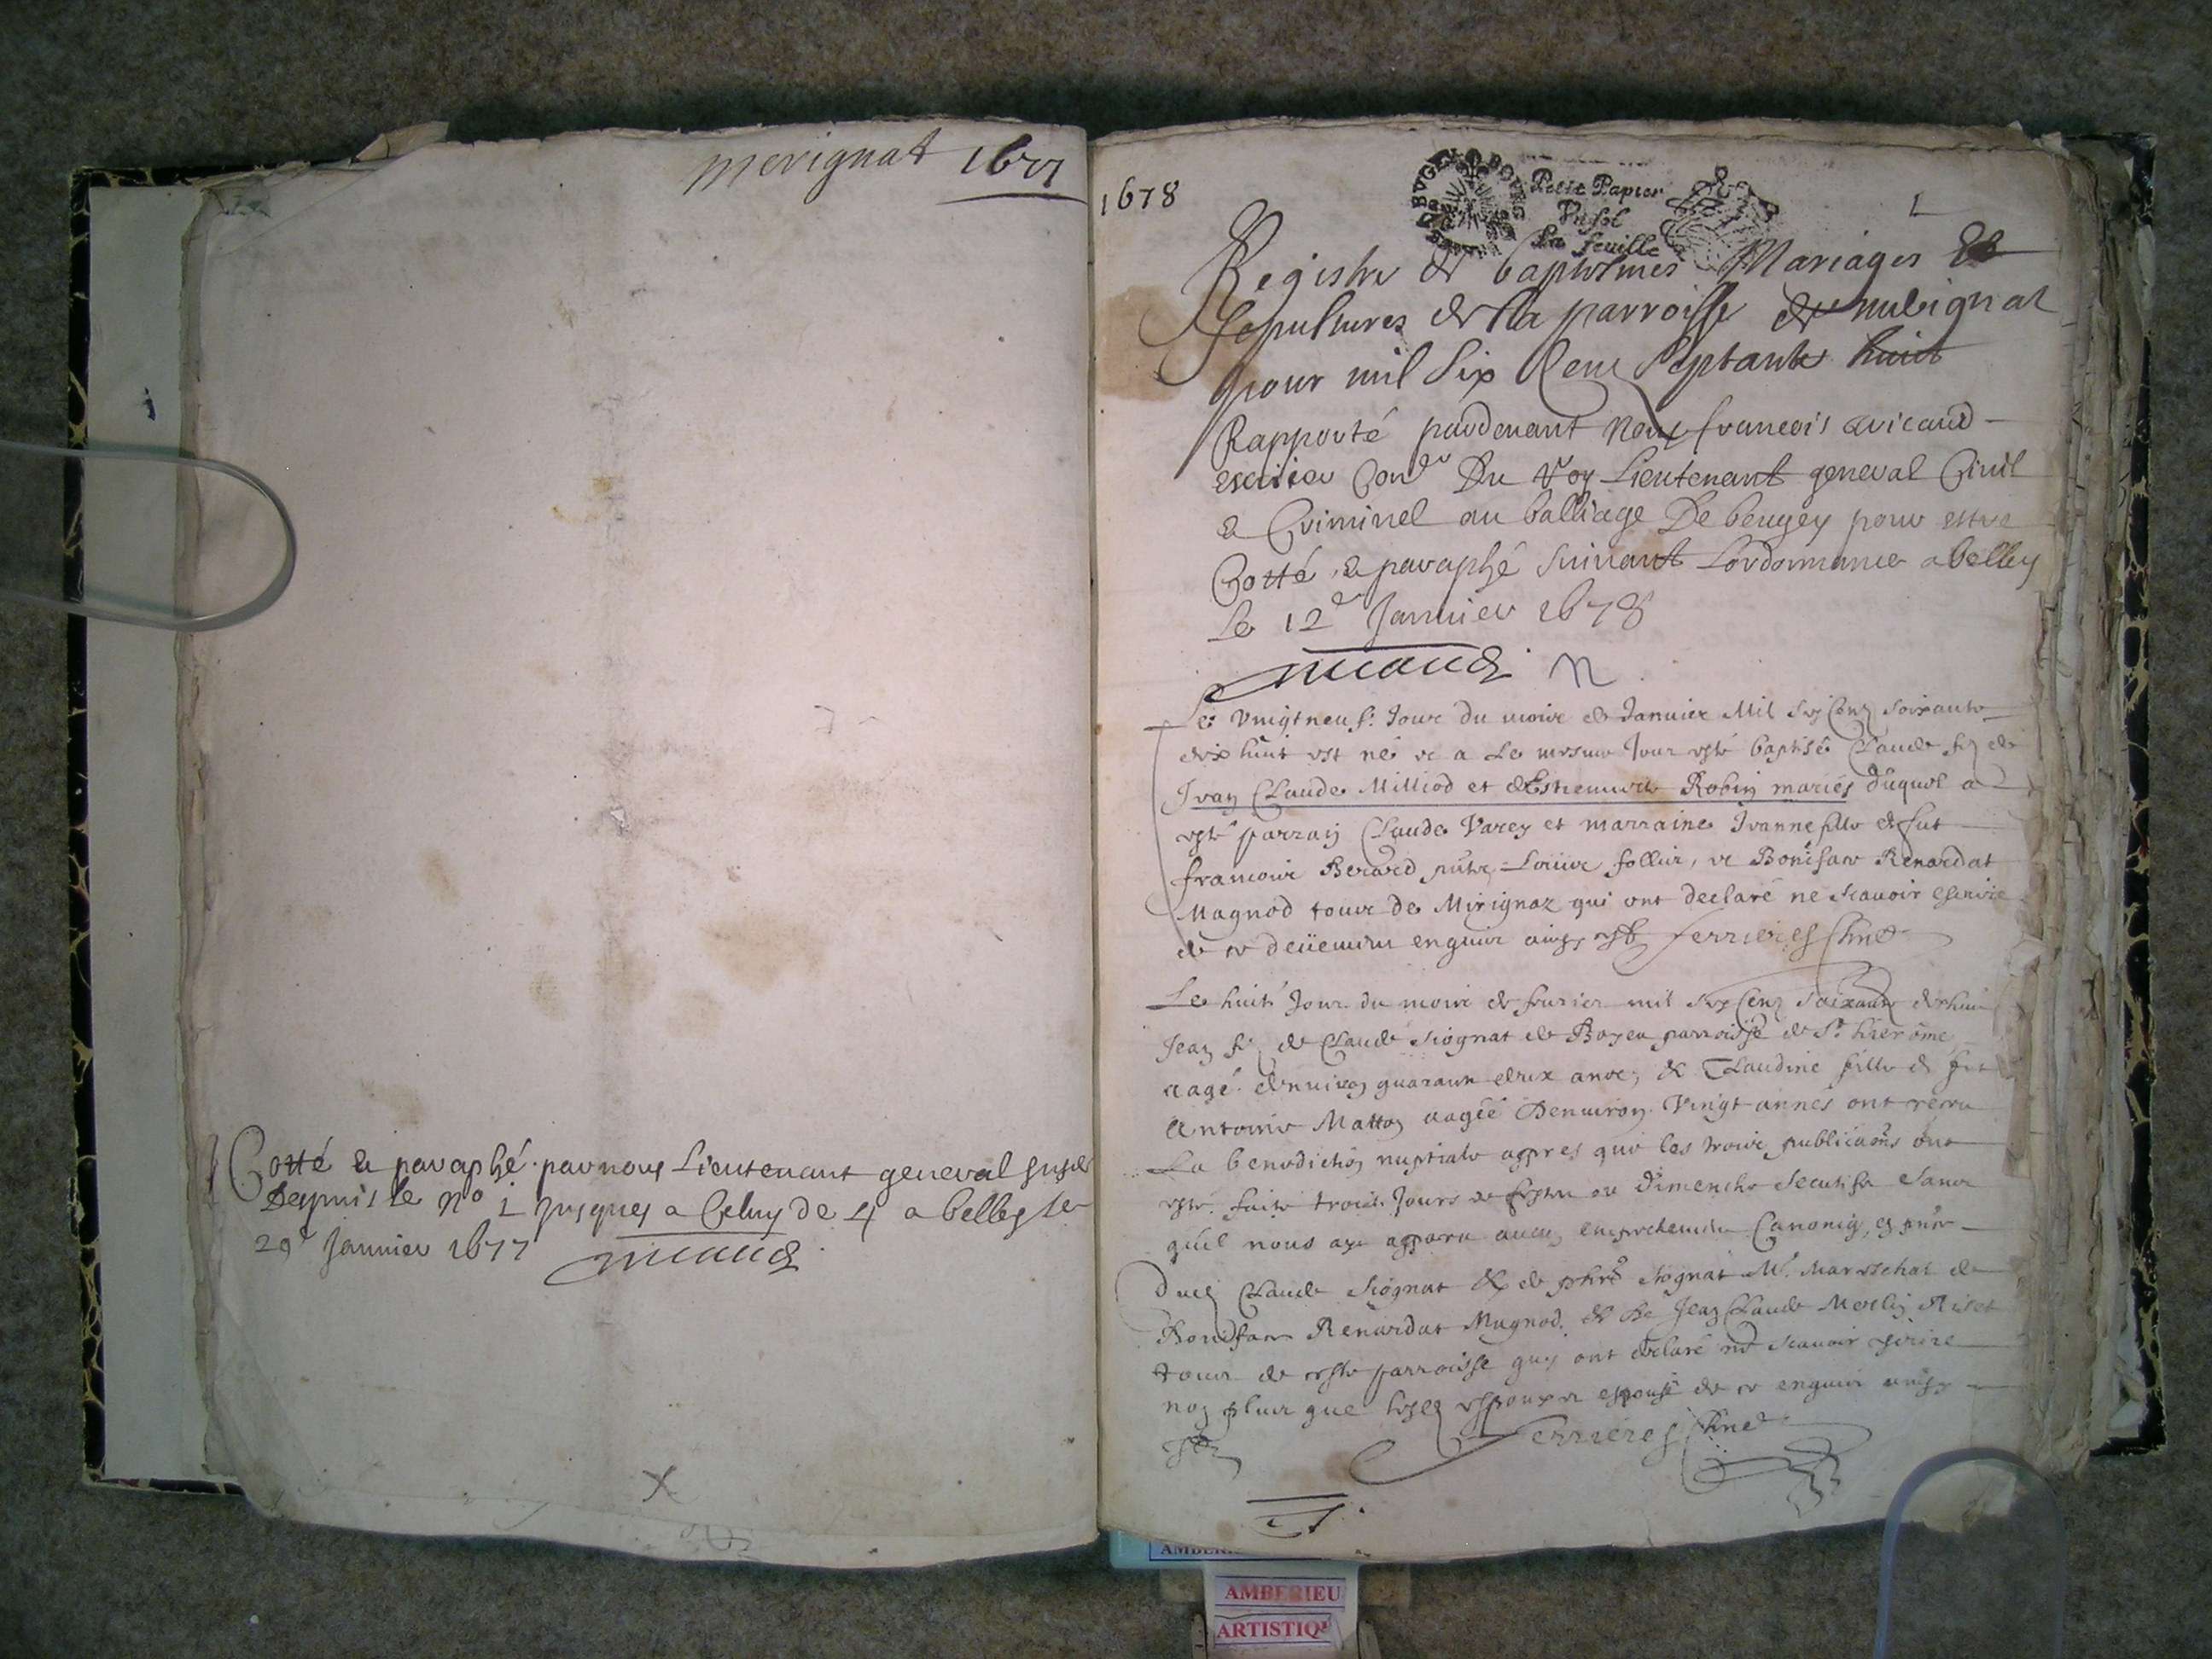 merignat 1677
Cotté & paraphé par nous Lieutenant general susd
Despuis le no 1 jusques a Celuy de 4 a belley le
29e Jannier 1677
1678
BVGEY
Petit Papier
Vn sol
La feuille
1
Registre de baptesmes Mariages Et
sepultures de la parroisse de
pour mil Six Cens Septante huict
Rapporté pardenant Nous francois
escuier Coner Du Roy Lieutenant general Ciuil
& Criminel au balliage De beugey pour estre
Cotté & paraphé suiuant Lordonnance a belley
Le 12e Jannier 1678
Le Vingtneuf. Jour du moire de Januier Mil Six Cens soixante
dix huit est né et a Le mesme Jour esté baptisé Claude fiz de
Jean Claude Milliod et Robin mariés duquel a
esté parrain Claude Varey et marraine Jeanne fille de fut
francoise Berard follier, et Boniface Renardat
Magnod tous de Mirignaz qui ont declaré ne scauoir escrire
de ce enquis Ferrieres
Le huit. Jour du moire de feurier mil Six Cens soixante dixhuit
Jean fiz de Claude Siognat de Boyeu parroisse de St. hierôme
aagé denuiron quarante deux ans, & Claudine fille de fut
Antoine Matton aagéé Denuiron Vingt annés ont receu
La benediction nuptiale appres que les trois publicaõns ont
esté faite trois Jours de feste ou Dimenche secutifs sans
quil nous aye apparu aucun Canoniq, es pñce
Dud Claude Siognat & de Siognat Me. Mareschal de
Boniface Renardat Magnod. & de Jean Claude Merlin
tous de ceste parroisse quy ont declaré ne scauoir escrire
non plus que lesd espoux et espouse de ce enquis
Ferrieres
AMBERIEU
ARTISTIQU